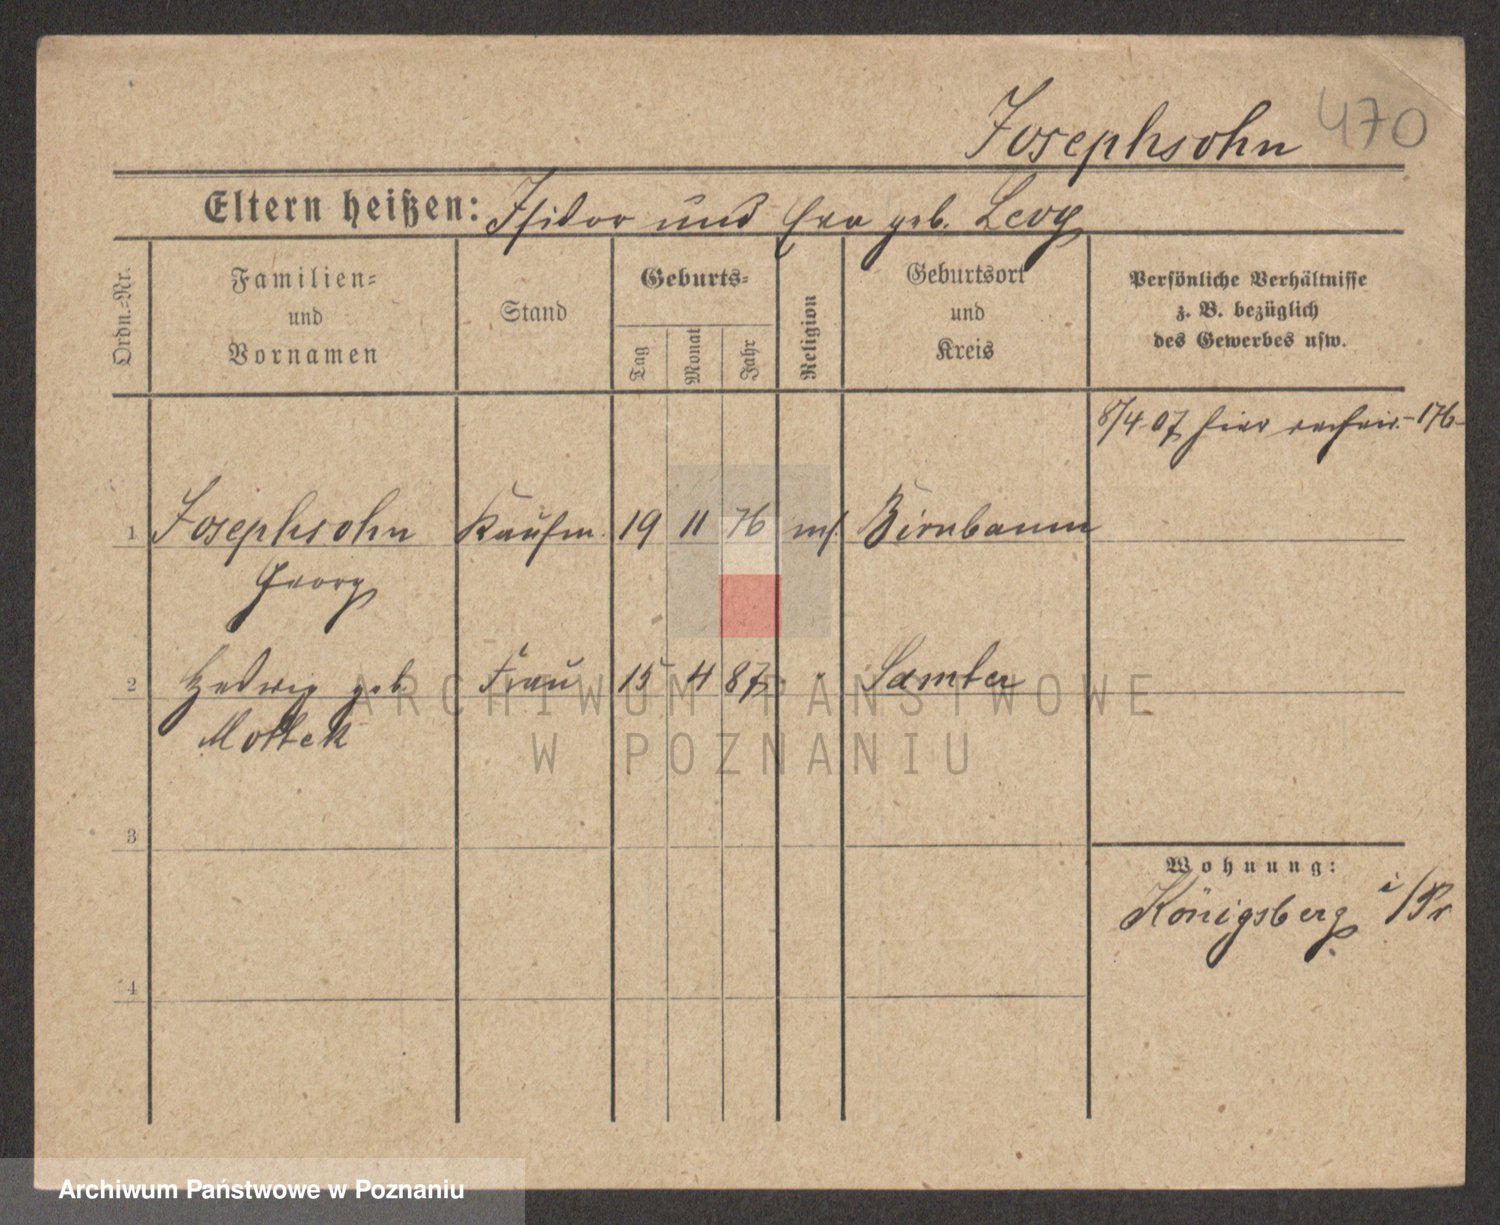 Josephsohn 470
Eltern heißen: Isidor und Eva geb. Levy
Ordn.-Nr.
Familien-
und
Vornamen
Stand
Geburts-
Tag
Monat
Jahr
Religion
Geburtsort
und
Kreis
Persönliche Verhältnisse
z. B. bezüglich
des Gewerbes usw.
8/4 07 hier -176-
1 Josephsohn Kaufm. 19 11 76 mos. Birnbaum
Georg
2 Hedwig geb. Frau 15 4 87 " Samter
Mottek
3
Wohnung:
Königsberg i/Pr
4
ARCHIWUM PAŃSTWOWE
W POZNANIU
Archiwum Państwowe w Poznaniu